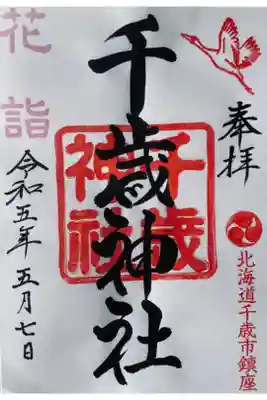 奉拝
北海道千歳市鎮座
千歳神社
千歳
神社
花詣
令和五年五月七日